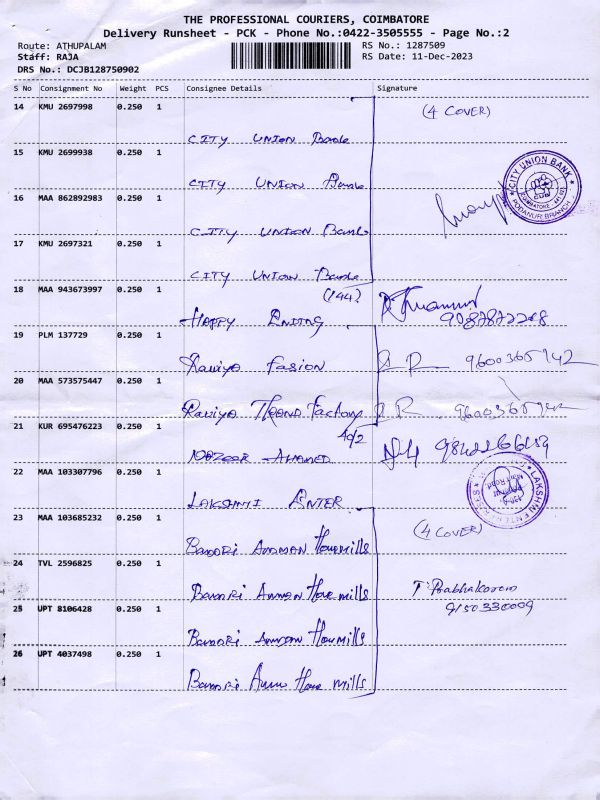 THE PROFESSIONAL COURIERS, COIMBATORE
Delivery Runsheet - PCK - Phone No.:0422-3505555 - Page No.:2
Route: ATHUPALAM
RS No.: 1287509
Staff: RAJA
RS Date: 11-Dec-2023
DRS No.: DCJB128750902
S No Consignment No Weight PCS Consignee Details Signature
14 KMU 2697998 0.250 1
(4 COVER)
CITY UNION Bank
15 KMU 2699938 0.250 1
CITY UNION BANK
PODANUR BRANCH
CITY UNION Bank
16 MAA 862892983 0.250 1
CITY UNION Bank
17 KMU 2697321 0.250 1
CITY UNION Bank
18 MAA 943673997 0.250 1
(144)
HAPPY
19 PLM 137729 0.250 1
Raviya Fasion R 9600365942
20 MAA 573575447 0.250 1
Raviya Factory R 9600365942
21 KUR 695476223 0.250 1
40/2
NOOZOOR AHAMED
22 MAA 103307796 0.250 1
LAKSHMI ENTERPRISES
LAKSHMI ENTER
23 MAA 103685232 0.250 1
(4 COVER)
Bannari Amman Flour mills
24 TVL 2596825 0.250 1
T. Prabhakaran
Bannari Amman Flour mills
9150330009
25 UPT 8106428 0.250 1
Bannari Amman Flour mills
26 UPT 4037498 0.250 1
Bannari Amman Flour mills